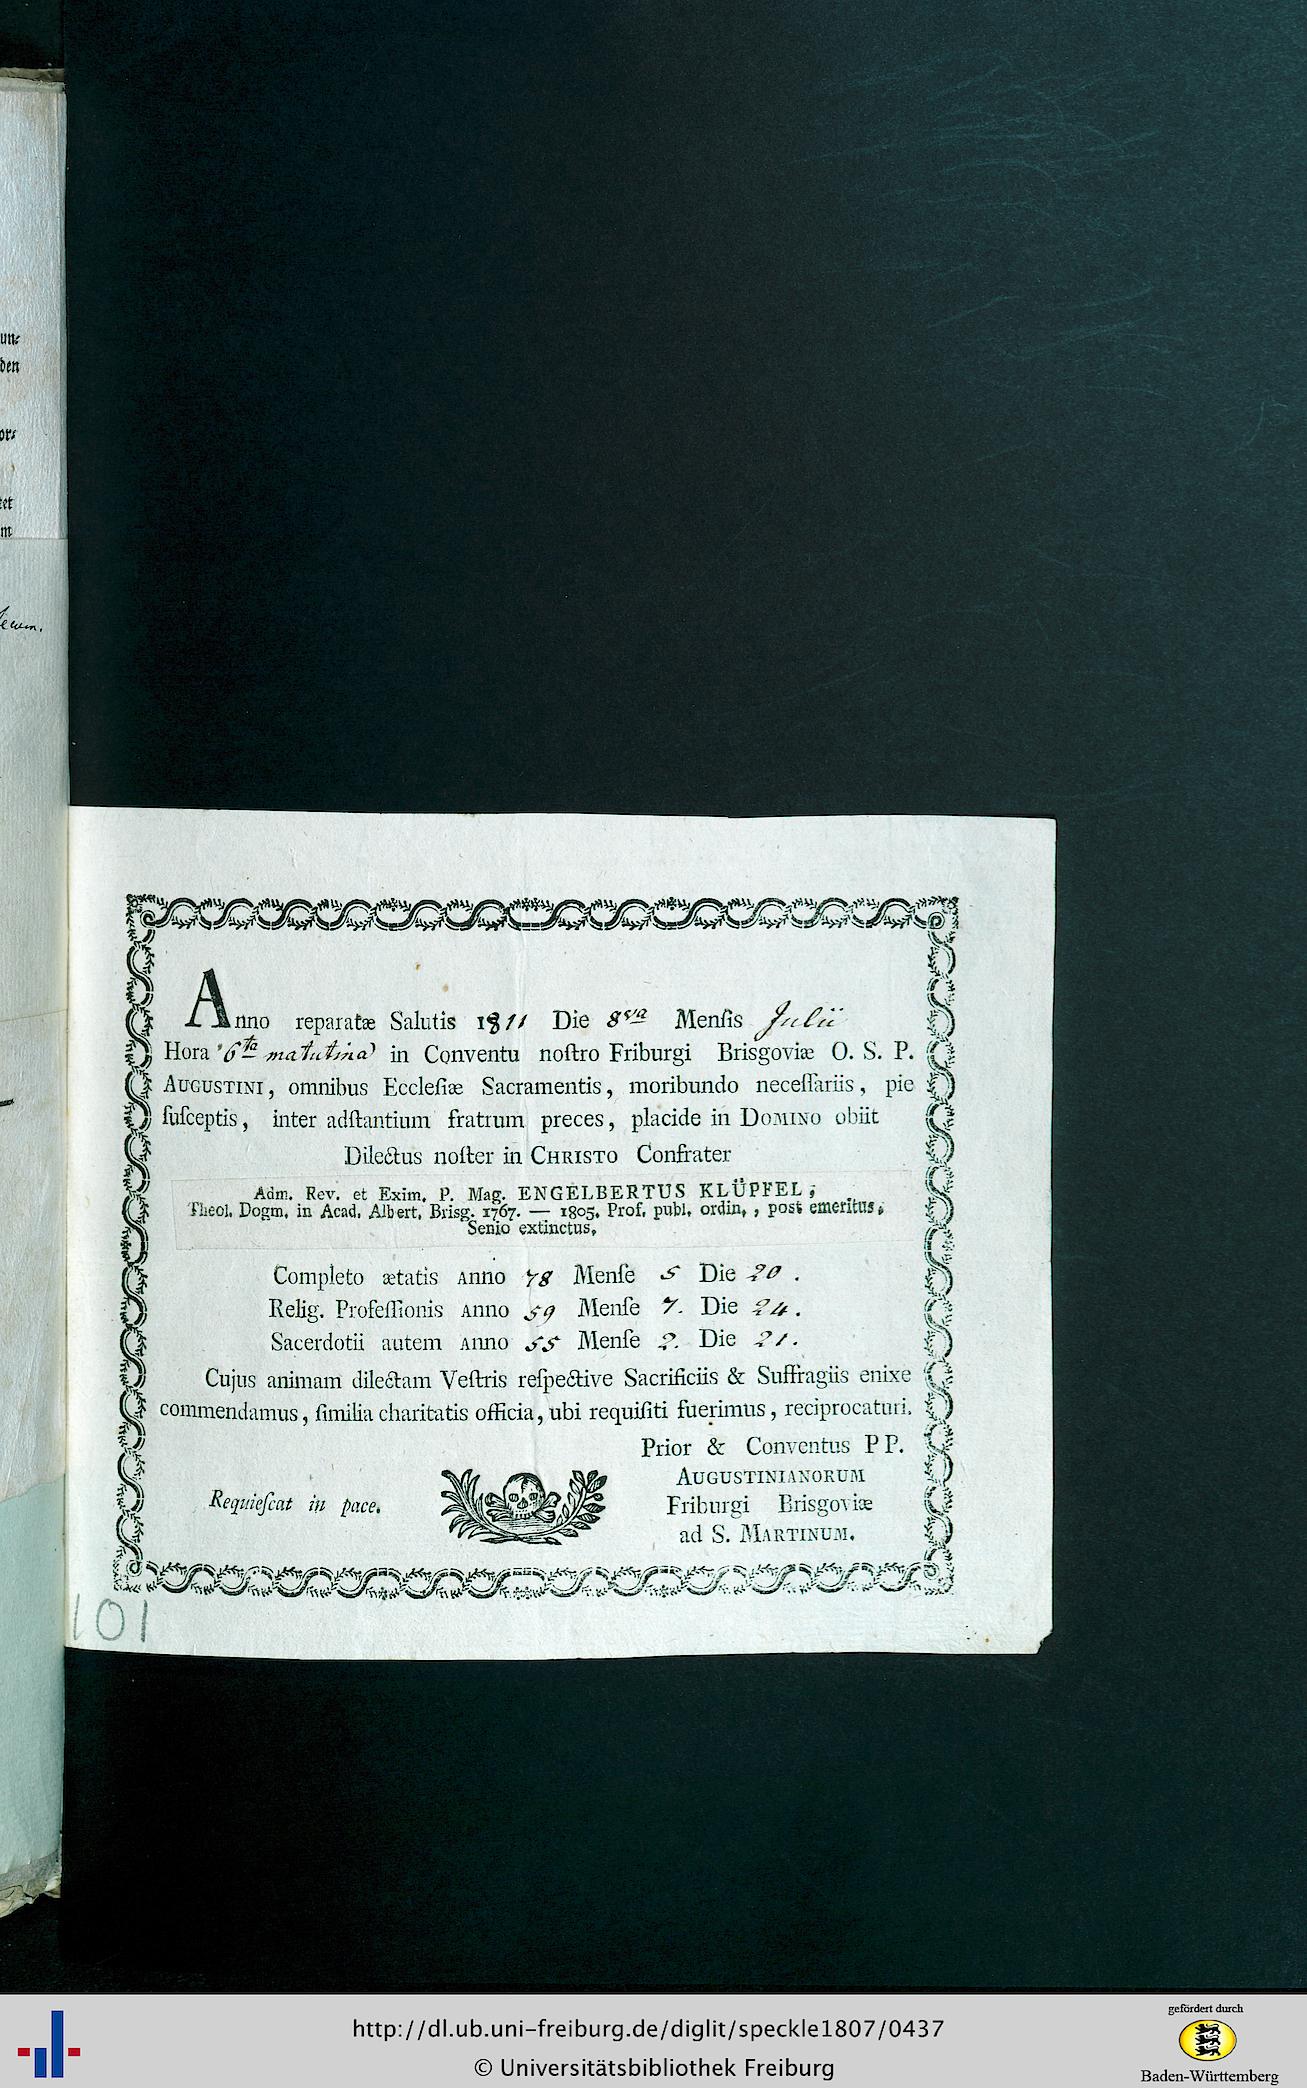 un⸗
den
or⸗
tet
m
Anno reparatæ Salutis 1811 Die 8va Menſis Julii
Hora 6ta matutina in Conventu noſtro Friburgi Brisgoviæ O. S. P.
AUGUSTINI, omnibus Eccleſiæ Sacramentis, moribundo neceſſariis, pie
ſuſceptis, inter adſtantium fratrum preces, placide in DOMINO obiit
Dilectus noſter in CHRISTO Confrater
Adm. Rev. et Exim. P. Mag. ENGELBERTUS KLÜPFEL,
Theol. Dogm. in Acad. Albert. Brisg. 1767. — 1805. Prof. publ. ordin., post emeritus,
Senio extinctus.
Completo ætatis Anno 78 Menſe 5 Die 20.
Relig. Profeſſionis Anno 59 Menſe 7. Die 24.
Sacerdotii autem Anno 55 Menſe 2. Die 21.
Cujus animam dilectam Veſtris reſpective Sacrificiis & Suffragiis enixe
commendamus, ſimilia charitatis officia, ubi requiſiti fuerimus, reciprocaturi.
Prior & Conventus PP.
AUGUSTINIANORUM
Requieſcat in pace.
Friburgi Brisgoviæ
ad S. MARTINUM.
101
http://dl.ub.uni-freiburg.de/diglit/speckle1807/0437
© Universitätsbibliothek Freiburg
gefördert durch
Baden-Württemberg